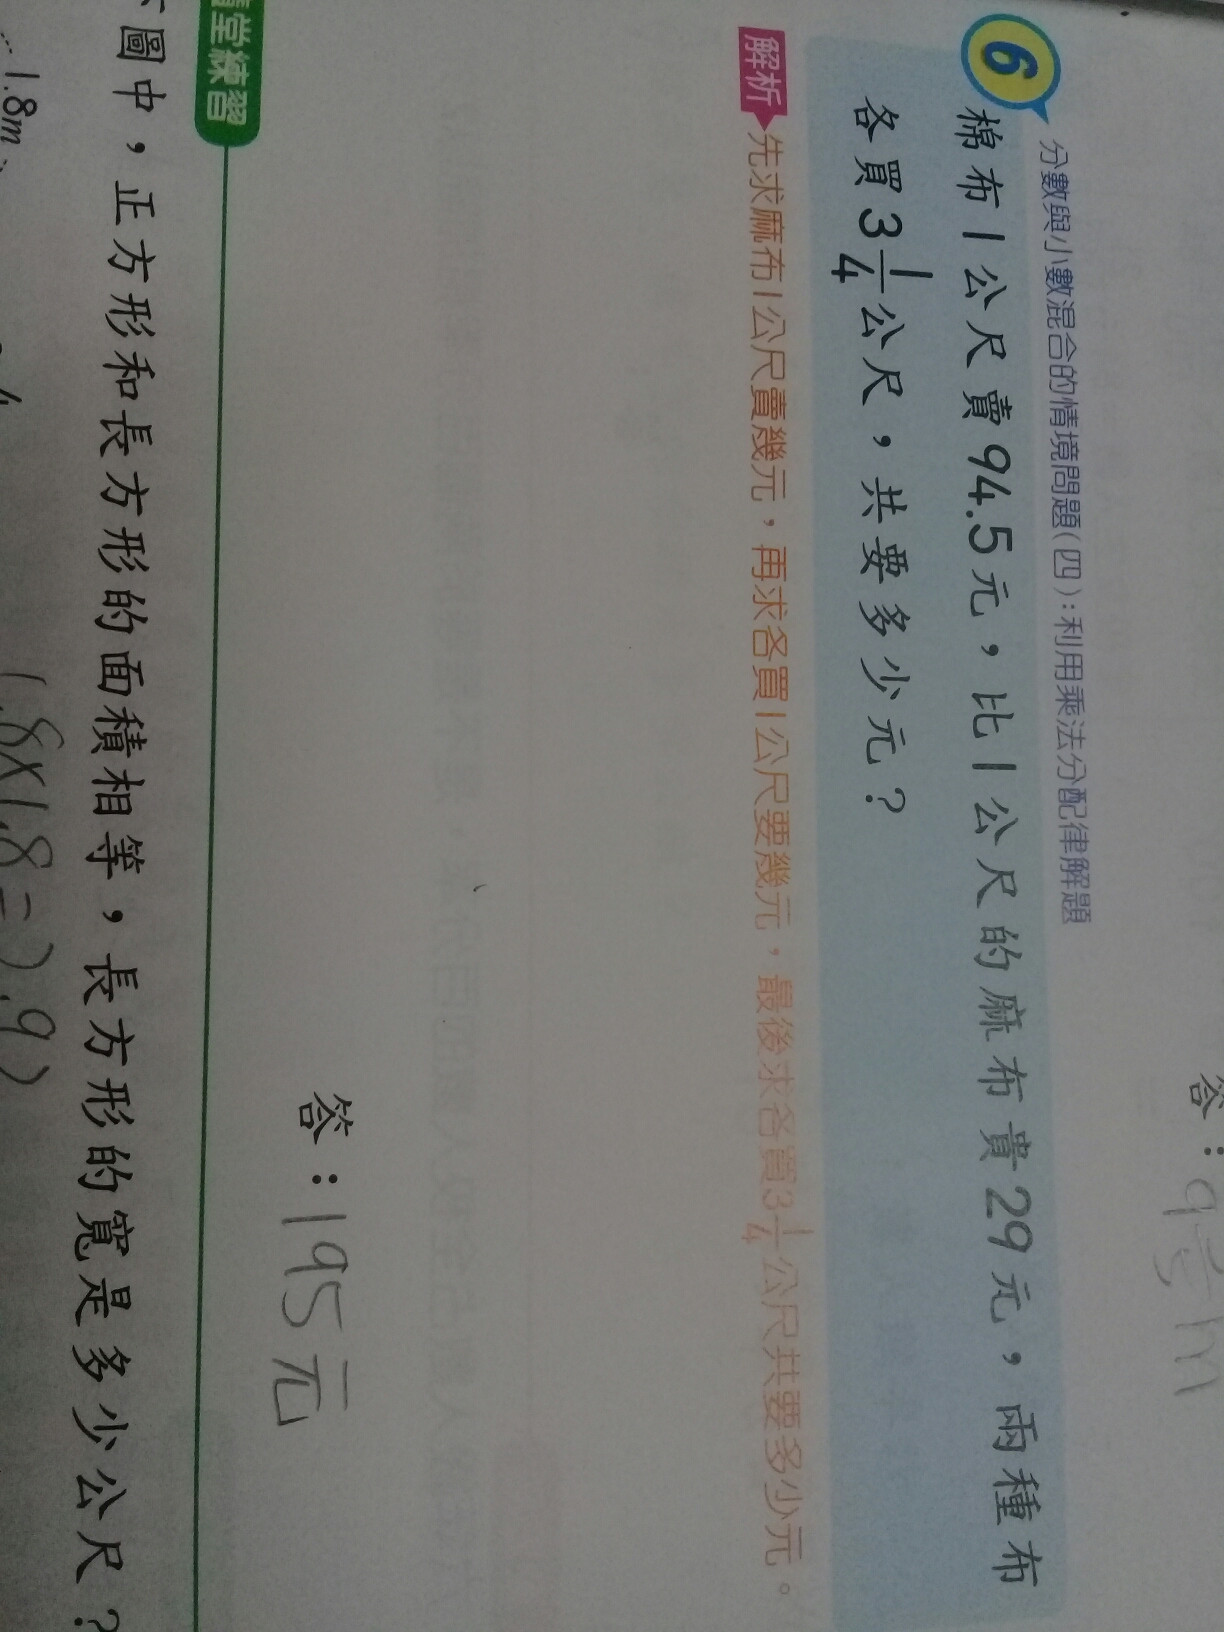 答：
6
分數與小數混合的情境問題(四):利用乘法分配律解題
棉布1公尺賣94.5元，比1公尺的麻布貴29元，兩種布
各買3 1/4公尺，共要多少元？
解析 先求麻布1公尺賣幾元，再求各買1公尺要幾元，最後求各買3 1/4公尺共要多少元。
答：195元
堂練習
圖中，正方形和長方形的面積相等，長方形的寬是多少公尺？
1.8m